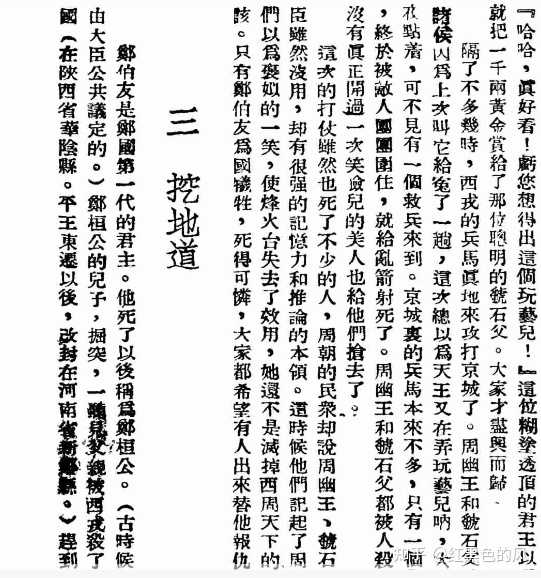 『哈哈，眞好看！虧您想得出這個玩藝兒！』這位糊塗透頂的君王以
就把一千兩黃金賞給了那位聰明的虢石父。大家才盡興而歸、
隔了不多幾時，西戎的兵馬眞地來攻打京城了。周幽王和虢石
諸侯因爲上次叫它給寃了一趟，這次總以爲天王又在弄玩藝兒吶，大
夜點着，可不見有一個救兵來到。京城裏的兵馬本來不多，只有一個
，終於被敵人團團圍住，就給亂箭射死了。周幽王和虢石父都被人殺
沒有眞正開過一次笑臉兒的美人也給他們搶去了。
這次的打仗雖然也死了不少的人，周朝的民衆却說周幽王、虢石
臣雖然沒用，却有很强的記憶力和推論的本領。這時候他們記起了周
們以爲褒姒的一笑，使烽火台失去了效用，她還不是滅掉西周天下的
該。只有鄭伯友爲國犧牲，死得可憐，大家都希望有人出來替他報仇
三 挖地道
鄭伯友是鄭國第一代的君主。他死了以後稱爲鄭桓公。（古時候
由大臣公共議定的。）鄭桓公的兒子，掘突，一聽見父親被西戎殺了
國（在陝西省華陰縣。平王東遷以後，改封在河南省新鄭縣。）趕到
知乎